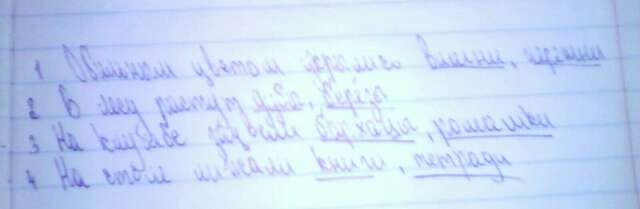 1 Обильном цветом покрылись вишни, черешни
2 В лесу растут дуб, берёза
3 На клумбе зацвели бархацы, ромашки
4 На столе лежали книги, тетради